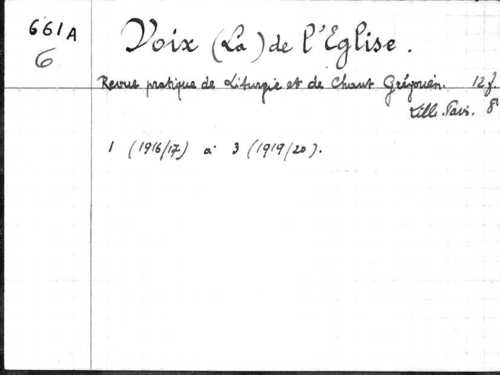 661A
6
Voix (La) de l'Eglise.
Revue pratique de Liturgie et de Chant Grégorien. 12 f.
Lille. Paris. 8°
1 (1916/17) à 3 (1919/20).